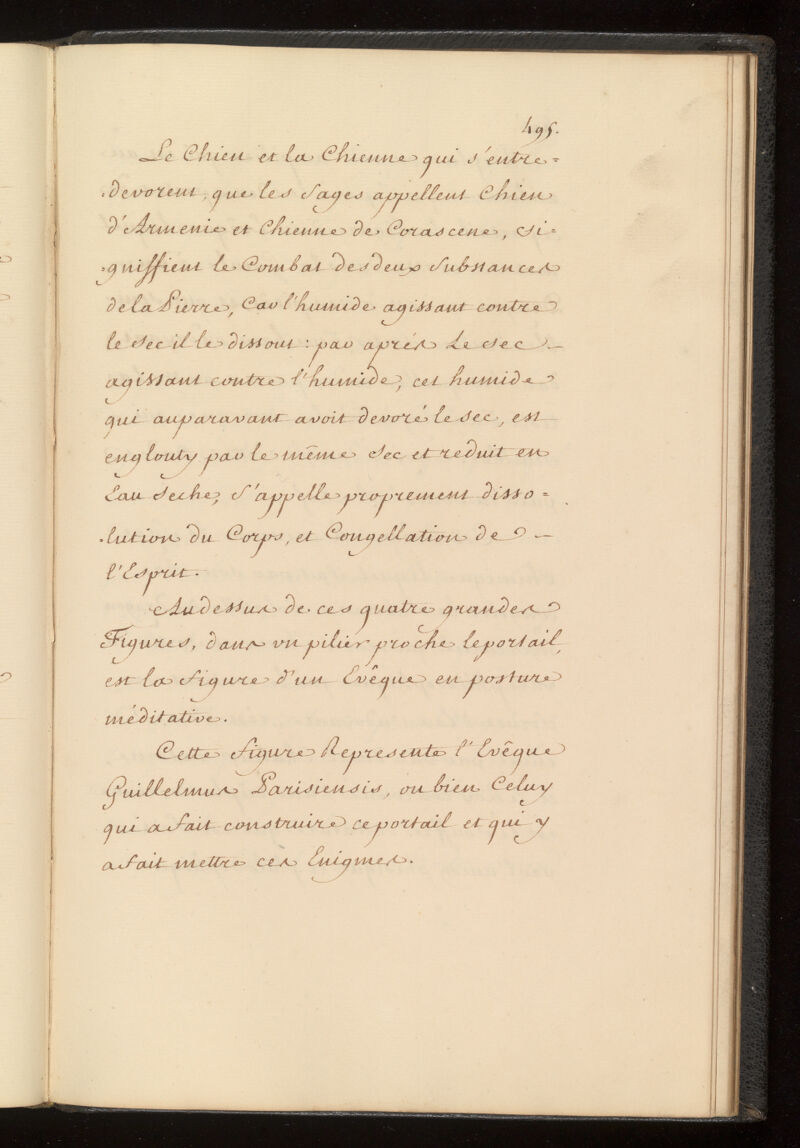 495.
Le Chien et la Chienne qui s'entre=
=devorent, que les Sages appellent Chien
d'Armenie et Chienne de Corascene, si=
=gniffient le Combat des deux Substances
de la Pierre, Car l'humide agissant contre
le sec il le dissout : par aprés Le sec —
agissant contre l'humide, cet humide
qui auparavant avoit devoré le sec, est
englouty par le même sec et reduit en
Eau seche, S'appelle proprement disso=
=lution du Corps, et Congellation de —
l'Esprit.
Au dessus de ces quatre grandes
Figures, dans un pilier proche le portail,
est la figure d'un Evêque en posture
méditative.
Cette figure Represente l'Evêque
Guillelmus Parisiensis, ou bien Celuy
qui a fait construire ce portail et qui y
a fait mettre ces Enigmes.